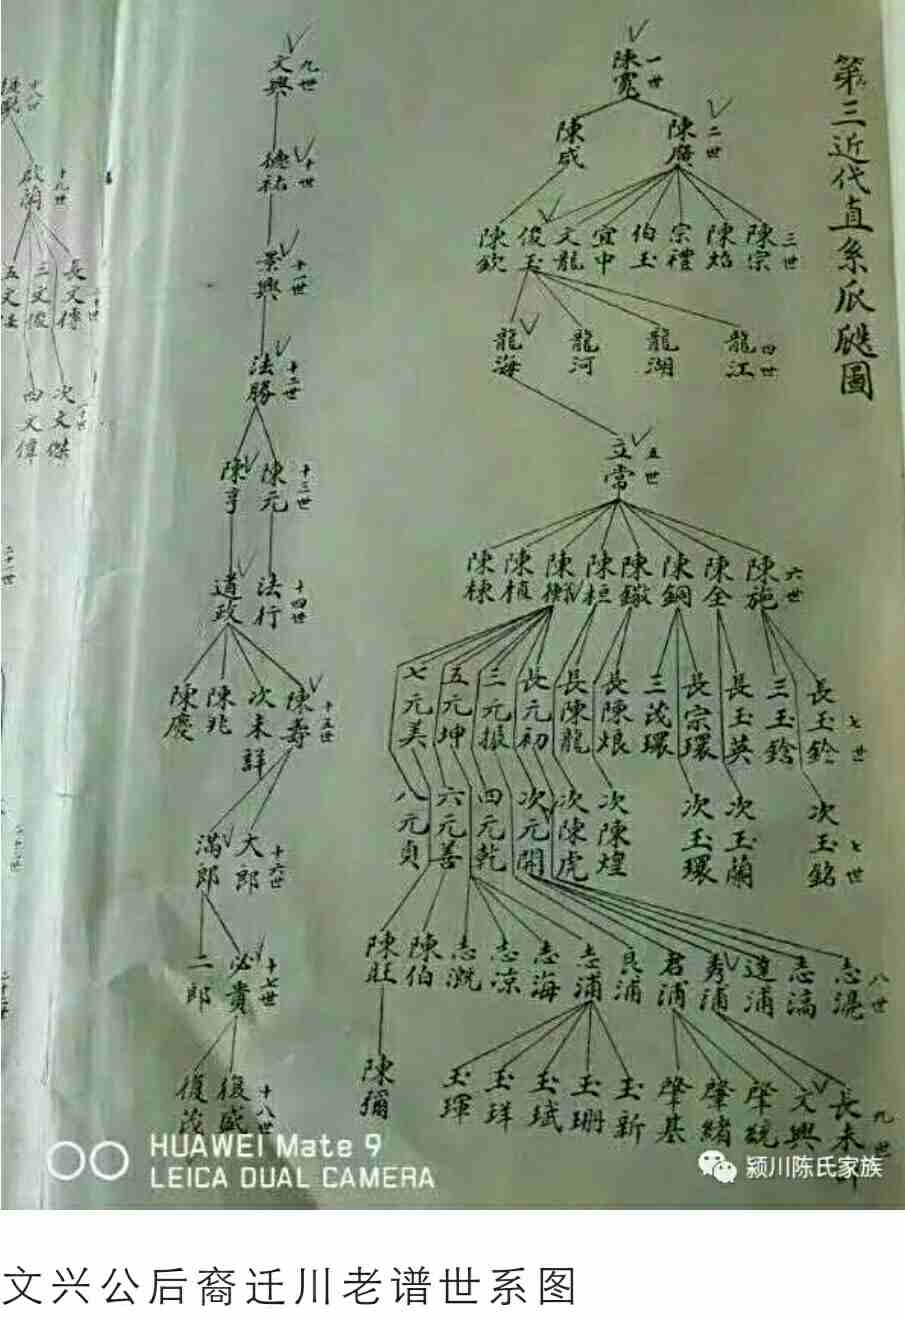 第三近代直系瓜瓞圖
一世
陳寬
二世
陳廣
陳咸
三世
陳宗
陳焰
宗禮
伯玉
宜中
文龍
俊玉
陳欽
四世
龍江
龍湖
龍河
龍海
五世
立常
六世
陳施
陳全
陳銅
陳鏾
陳桓
陳衡
陳植
陳棣
七世
長玉鈴
三玉鎗
長玉英
長宗環
三茂環
長陳烺
長陳龍
長元初
三元振
五元坤
七元美
七世
次玉銘
次玉蘭
次玉環
次陳煌
次陳虎
次元開
四元乾
六元善
八元貞
八世
志湜
志滈
道浦
秀浦
君浦
具浦
志浦
志海
志凉
志溉
陳伯
陳旺
九世
長未
文興
肇統
肇緒
肇基
玉新
玉珊
玉斌
玉珜
玉琿
陳獮
九世
文興
十世
德祐
十一世
景興
十二世
法勝
十三世
陳元
陳亨
十四世
法行
道政
十五世
陳壽
次未詳
陳兆
陳慶
十六世
大郎
滿郎
十七世
必貴
二郎
十八世
復盛
復茂
十九世
啟蘭
長文傳
三文俊
次文傑
四文偉
二十一世
HUAWEI Mate 9
LEICA DUAL CAMERA
颍川陈氏家族
文兴公后裔迁川老谱世系图